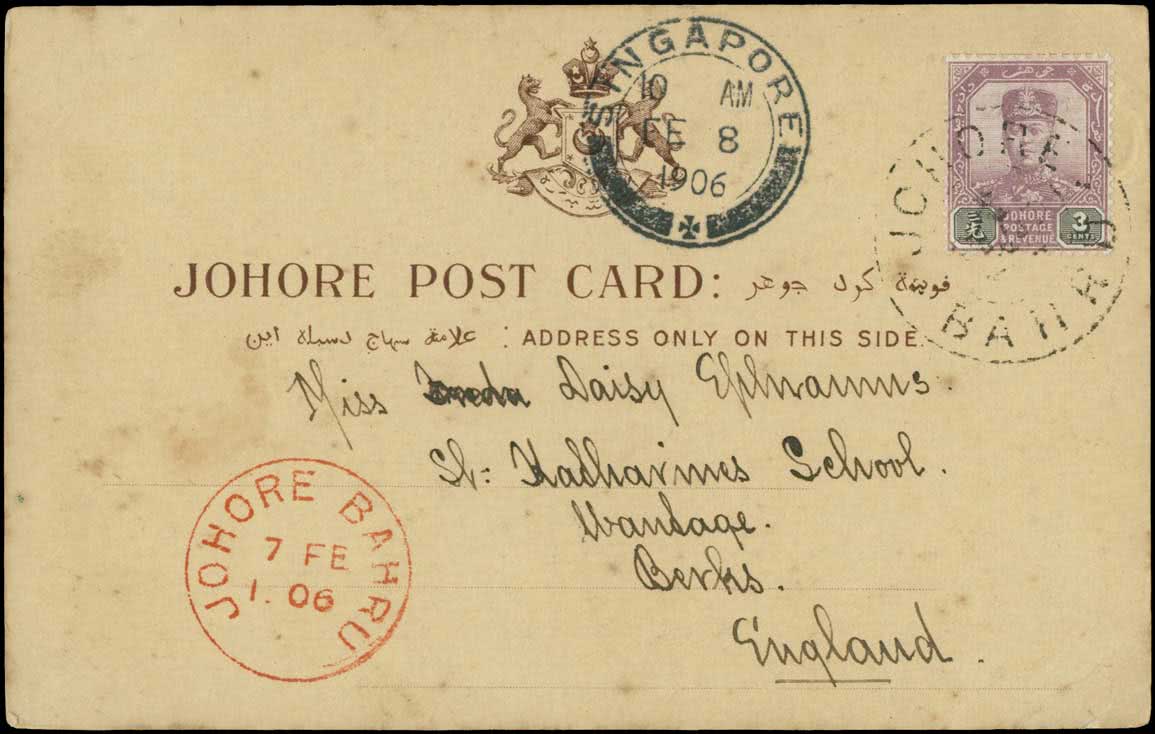 SINGAPORE
10 AM
FE 8
1906
JOHORE
POSTAGE
& REVENUE
3
CENTS
JOHORE BAHRU
JOHORE POST CARD: جوهر كرد
علامة سهاج دسبلة اين : ADDRESS ONLY ON THIS SIDE.
Miss Daisy Ephraums.
St: Katharines School.
Wantage.
Berks.
England.
JOHORE BAHRU
7 FE
1. 06